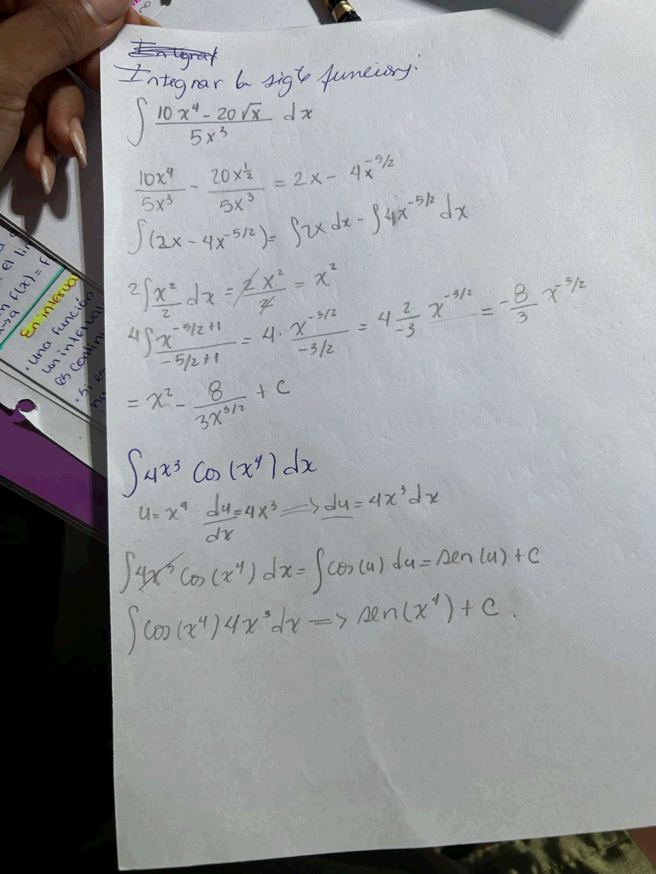 Integrar
Integrar la sigte función:
∫ (10x⁴ - 20√x)/(5x³) dx
10x⁴/5x³ - 20x^½/5x³ = 2x - 4x^-5/2
∫(2x - 4x^-5/2) = ∫2x dx - ∫4x^-5/2 dx
2∫ x²/2 dx = 2x²/2 = x²
4∫ x^-5/2+1/-5/2+1 = 4 · x^-3/2/-3/2 = 4 2/-3 x^-3/2 = -8/3 x^-3/2
= x² - 8/3x^3/2 + C
∫4x³ Cos(x⁴) dx
u = x⁴ du/dx = 4x³ => du = 4x³ dx
∫4x³ Cos(x⁴) dx = ∫cos(u) du = sen(u) + C
∫cos(x⁴) 4x³ dx => sen(x⁴) + C.
el lím
f(x) = f
En interva
· una función
un interval
es contin
· si